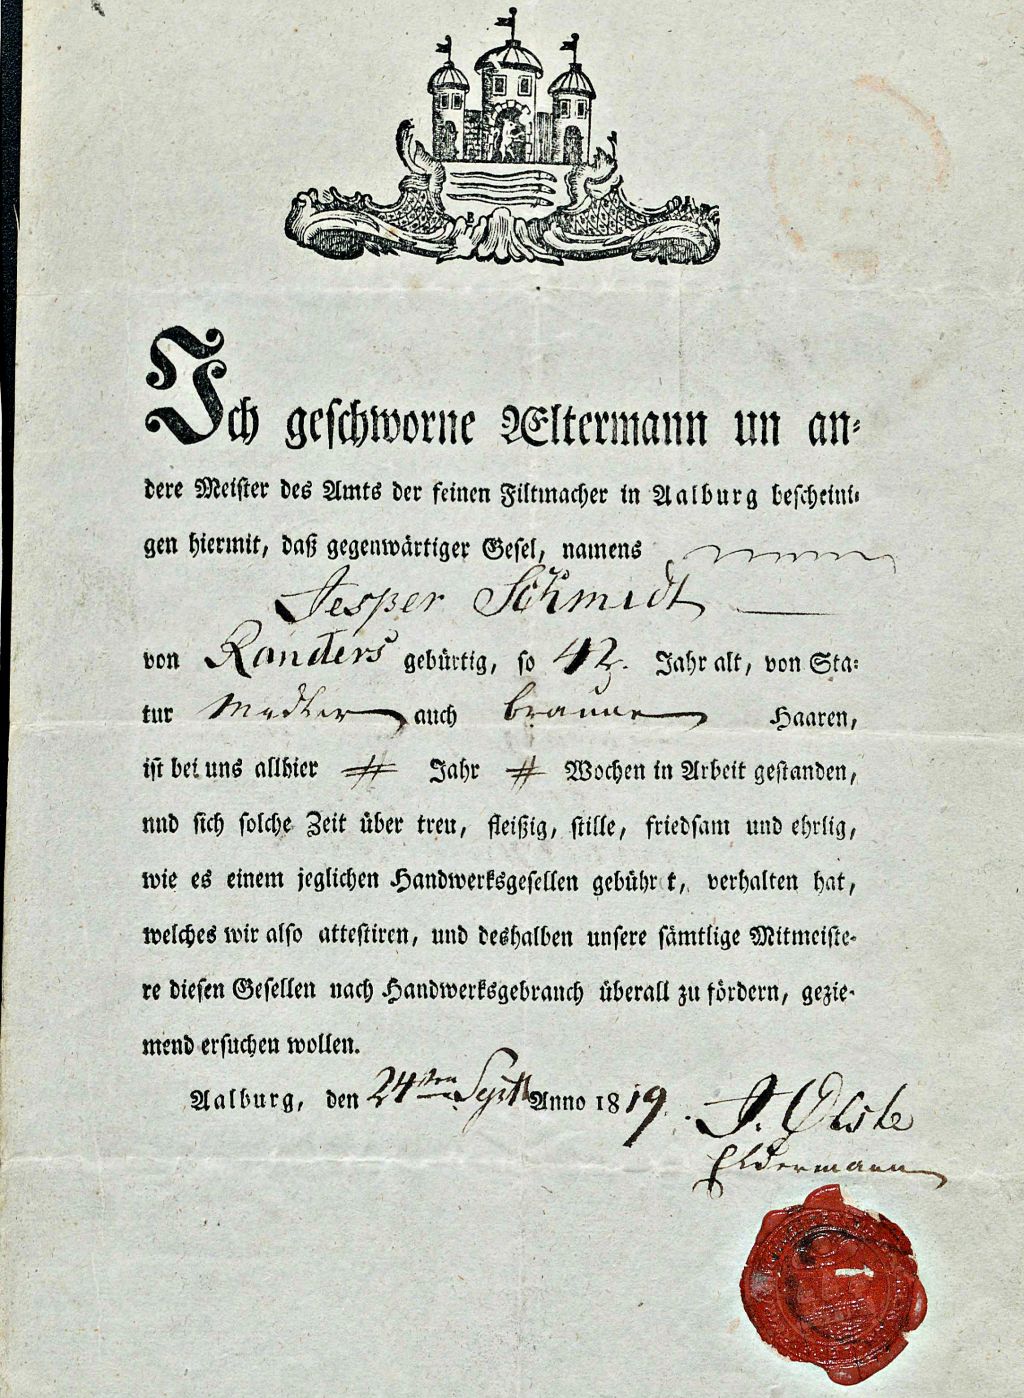 Ich geschworne Æltermann un an-
dere Meister des Amts der feinen Filtmacher in Aalburg bescheini-
gen hiermit, daß gegenwärtiger Gesel, namens
Jesper Schmidt
von Randers gebürtig, so 42. Jahr alt, von Sta-
tur Midler auch braune Haaren,
ist bei uns allhier # Jahr # Wochen in Arbeit gestanden,
nnd sich solche Zeit über treu, fleißig, stille, friedsam und ehrlig,
wie es einem jeglichen Handwerksgesellen gebühret, verhalten hat,
welches wir also attestiren, und deshalben unsere sämtlige Mitmeiste-
re diesen Gesellen nach Handwerksgebrauch überall zu fördern, gezie-
mend ersuchen wollen.
Aalburg, den 24ten Septb Anno 1819.
J. Øiste
Eldermann